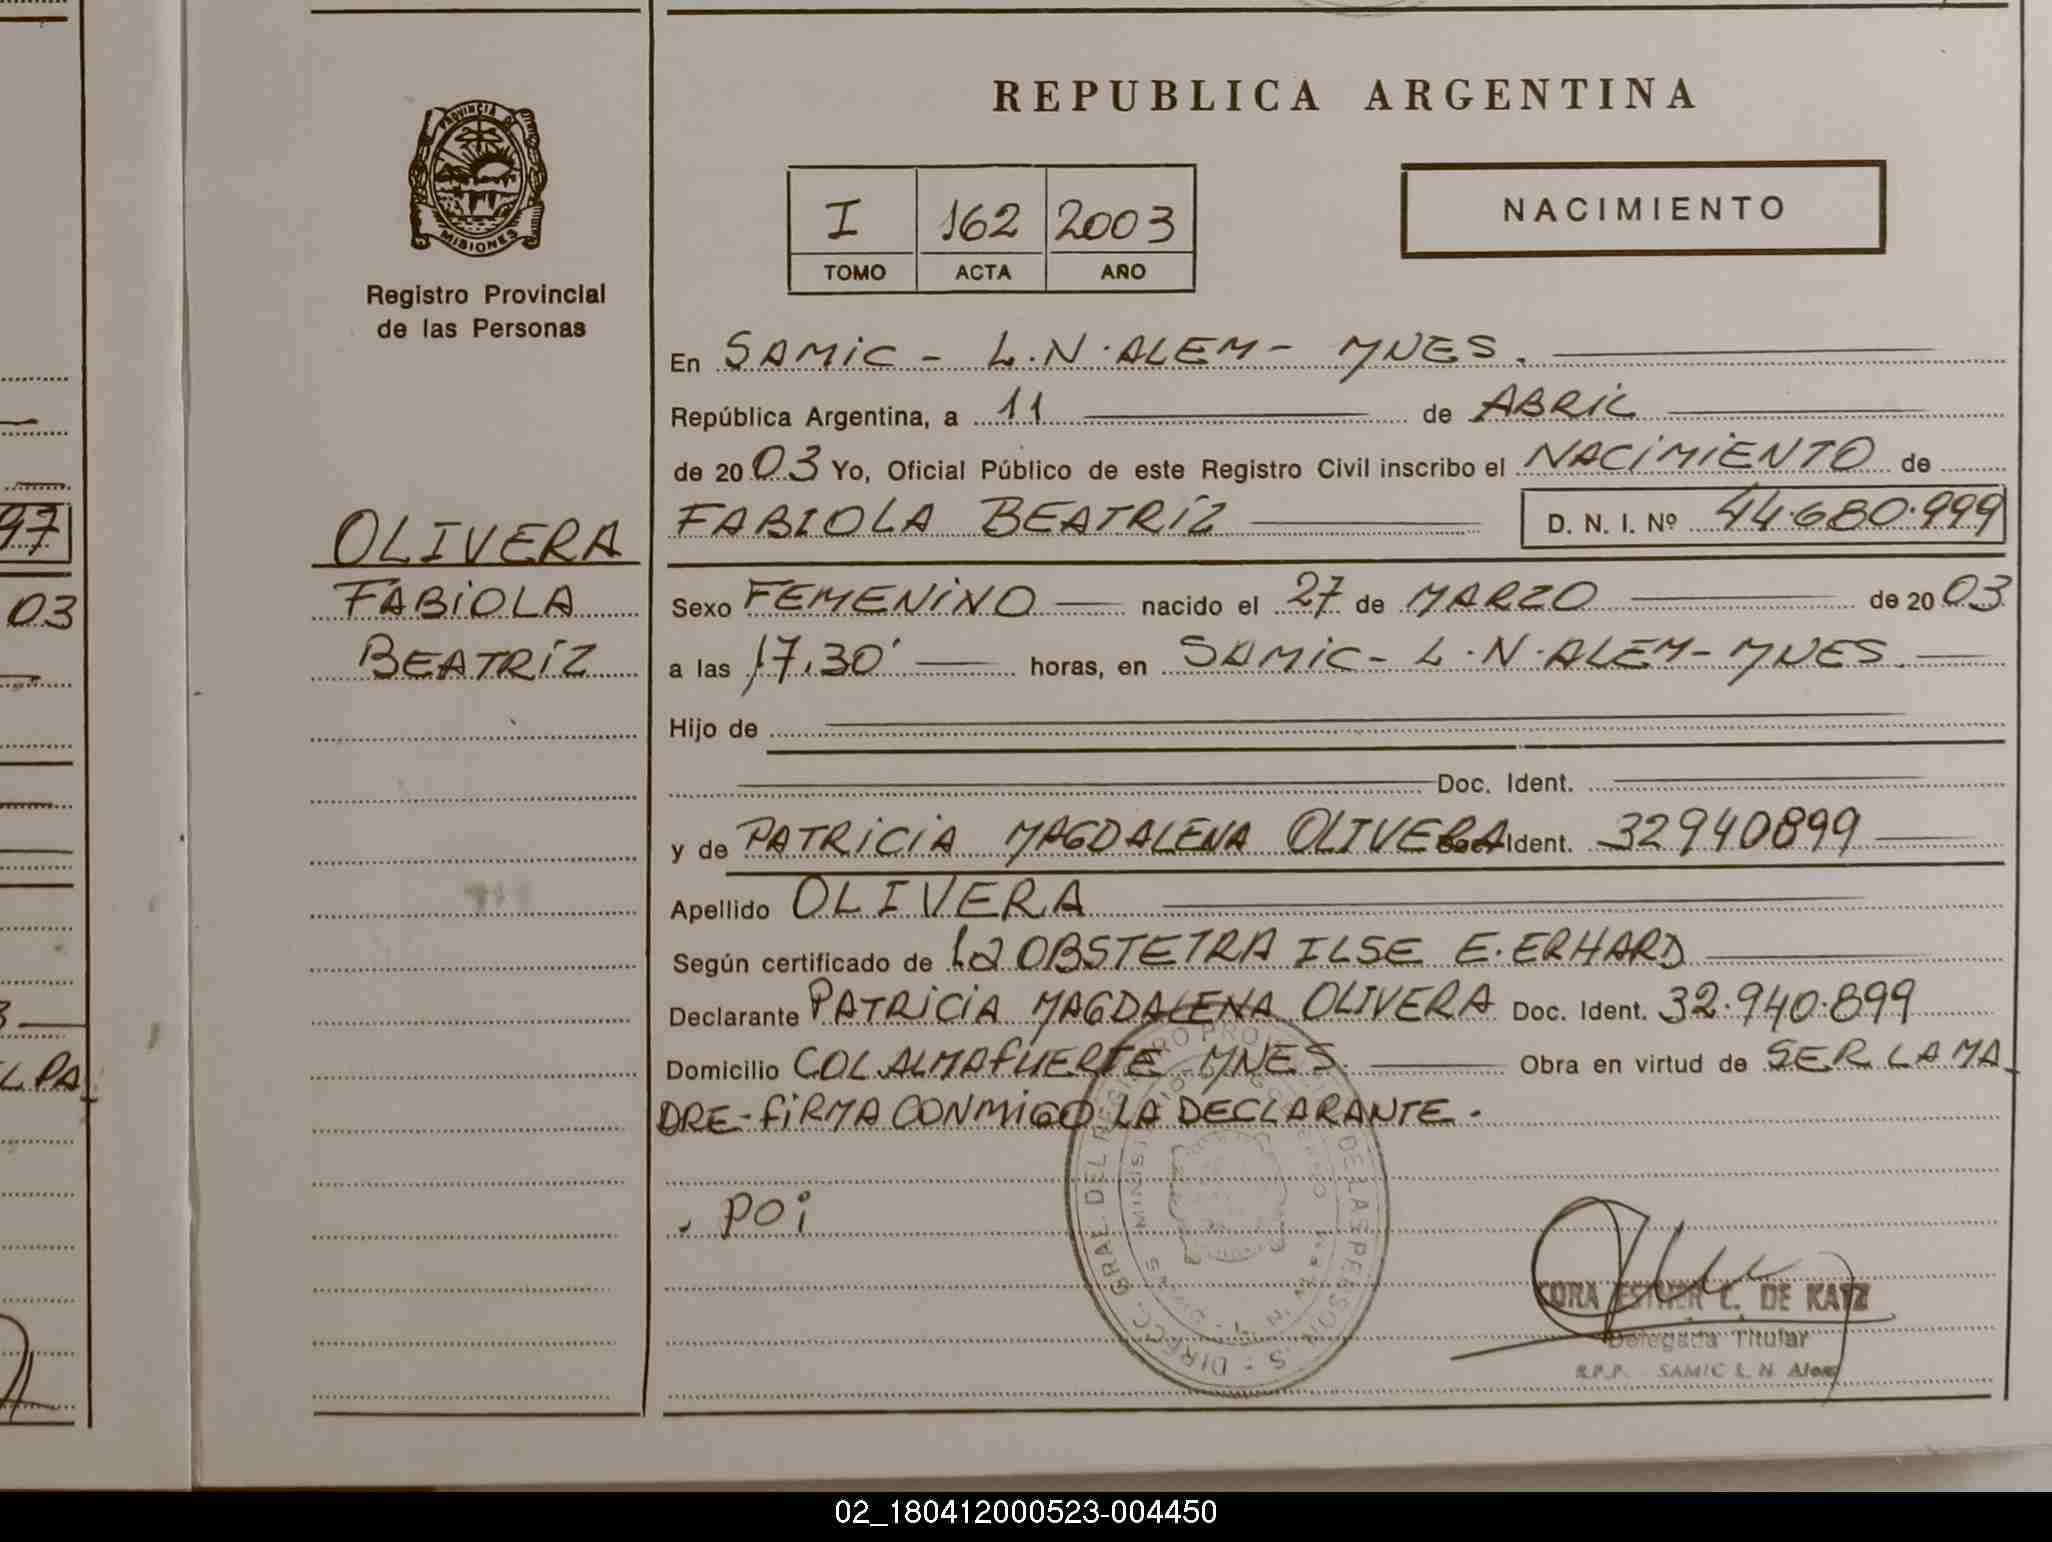 REPUBLICA ARGENTINA
PROVINCIA DE
MISIONES
Registro Provincial
de las Personas
I 162 2003
TOMO ACTA AÑO
NACIMIENTO
En SAMiC - L.N.ALEM - MNES.
República Argentina, a 11 de ABRiL
de 2003 Yo, Oficial Público de este Registro Civil inscribo el NACiMiENTO de
FABIOLA BEATRiZ D. N. I. Nº 44.680.999
OLIVERA
FABiOLA
BEATRiZ
Sexo FEMENiNO nacido el 27 de MARZO de 2003
a las 17.30' horas, en SAMiC - L.N.ALEM - MNES.
Hijo de
Doc. Ident.
y de PATRiCiA MAGDALENA OLIVERA Ident. 32940899
Apellido OLIVERA
Según certificado de La OBSTETRA ILSE E. ERHARD
Declarante PATRiCiA MAGDALENA OLIVERA Doc. Ident. 32.940.899
Domicilio COL.ALMAFUERTE - MNES. Obra en virtud de SER LA MA
DRE - FiRMA CONMiGO LA DECLARANTE.
. POi
DE LAS PERSONAS
DIRECC. GRAL. DEL REGISTRO PRO
CORA ESTHER C. DE KATZ
Delegada Titular
R.P.P. - SAMIC L. N. Alem
97
03
L PA
02_180412000523-004450